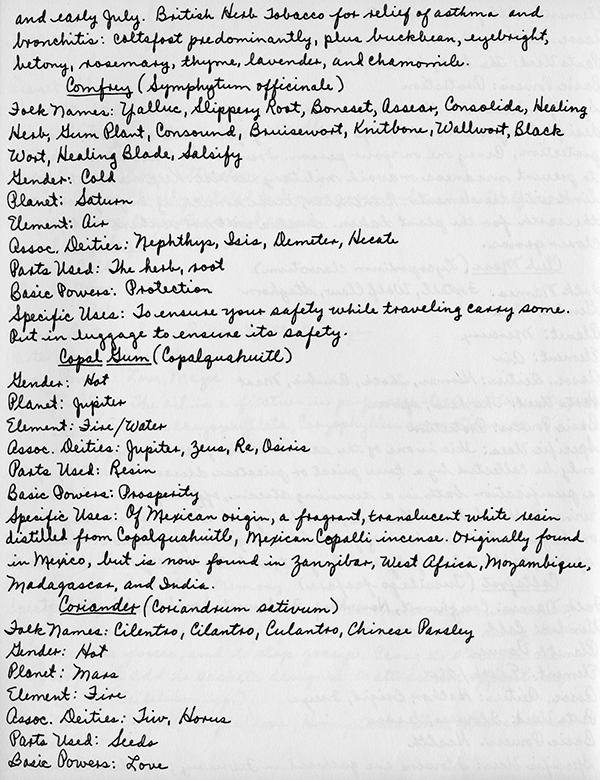 and early July. British Herb Tobacco for relief of asthma and
bronchitis: coltsfoot predominantly, plus buckbean, eyebright,
betony, rosemary, thyme, lavender, and chamomile.
Comfrey (Symphytum officinale)
Folk Names: Yalluc, Slippery Root, Boneset, Assear, Consolida, Healing
Herb, Gum Plant, Consound, Bruisewort, Knitbone, Wallwort, Black
Wort, Healing Blade, Salsify
Gender: Cold
Planet: Saturn
Element: Air
Assoc. Deities: Nephthys, Isis, Demeter, Hecate
Parts Used: The herb, root
Basic Powers: Protection
Specific Uses: To ensure your safety while traveling carry some.
Put in luggage to ensure its safety.
Copal Gum (Copalquahuitl)
Gender: Hot
Planet: Jupiter
Element: Fire/Water
Assoc. Deities: Jupiter, Zeus, Ra, Osiris
Parts Used: Resin
Basic Powers: Prosperity
Specific Uses: Of Mexican origin, a fragrant, translucent white resin
distilled from Copalquahuitl, Mexican Copalli incense. Originally found
in Mexico, but is now found in Zanzibar, West Africa, Mozambique,
Madagascar, and India.
Coriander (Coriandrum sativum)
Folk Names: Cilentro, Cilantro, Culantro, Chinese Parsley
Gender: Hot
Planet: Mars
Element: Fire
Assoc. Deities: Tiw, Horus
Parts Used: Seeds
Basic Powers: Love